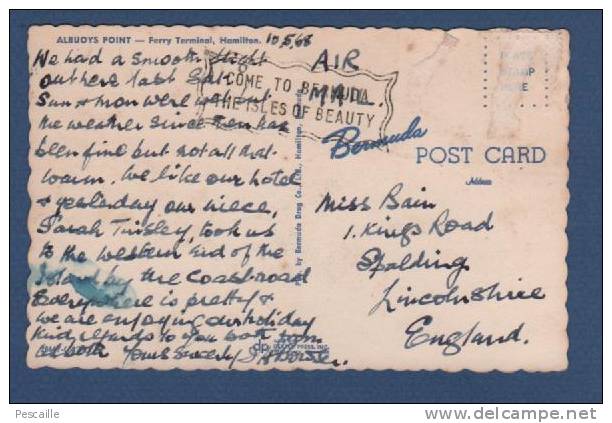 ALBUOYS POINT — Ferry Terminal, Hamilton. 10.5.68
We had a smooth flight
out here last Sat.
Sun & Mon were wet but
the weather since then has
been fine but not all that
warm. We like our hotel
& yesterday our niece,
Sarah Tinsley, took us
to the western end of the
Island by the coast road
Everywhere is pretty &
we are enjoying our holiday
Kind regards to you both from
us both Yours sincerely
AIR
MAIL
COME TO BERMUDA
THE ISLES OF BEAUTY
PLACE
STAMP
HERE
Bermuda
POST CARD
Address
Pub. by Bermuda Drug Co., Ltd., Hamilton, Bermuda
Miss Bain
1. Kings Road
Spalding
Lincolnshire
England.
dp
Pescaille
www.delcampe.net